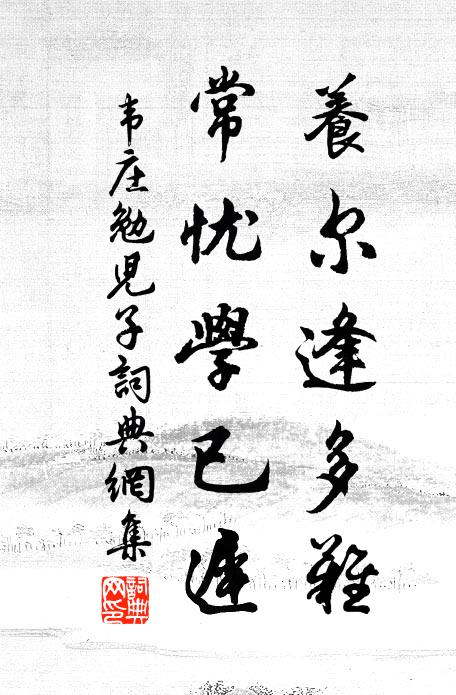 養尔逢多難
常忧學已遲
韦庄勉兒子詞典網集
詞典
网印